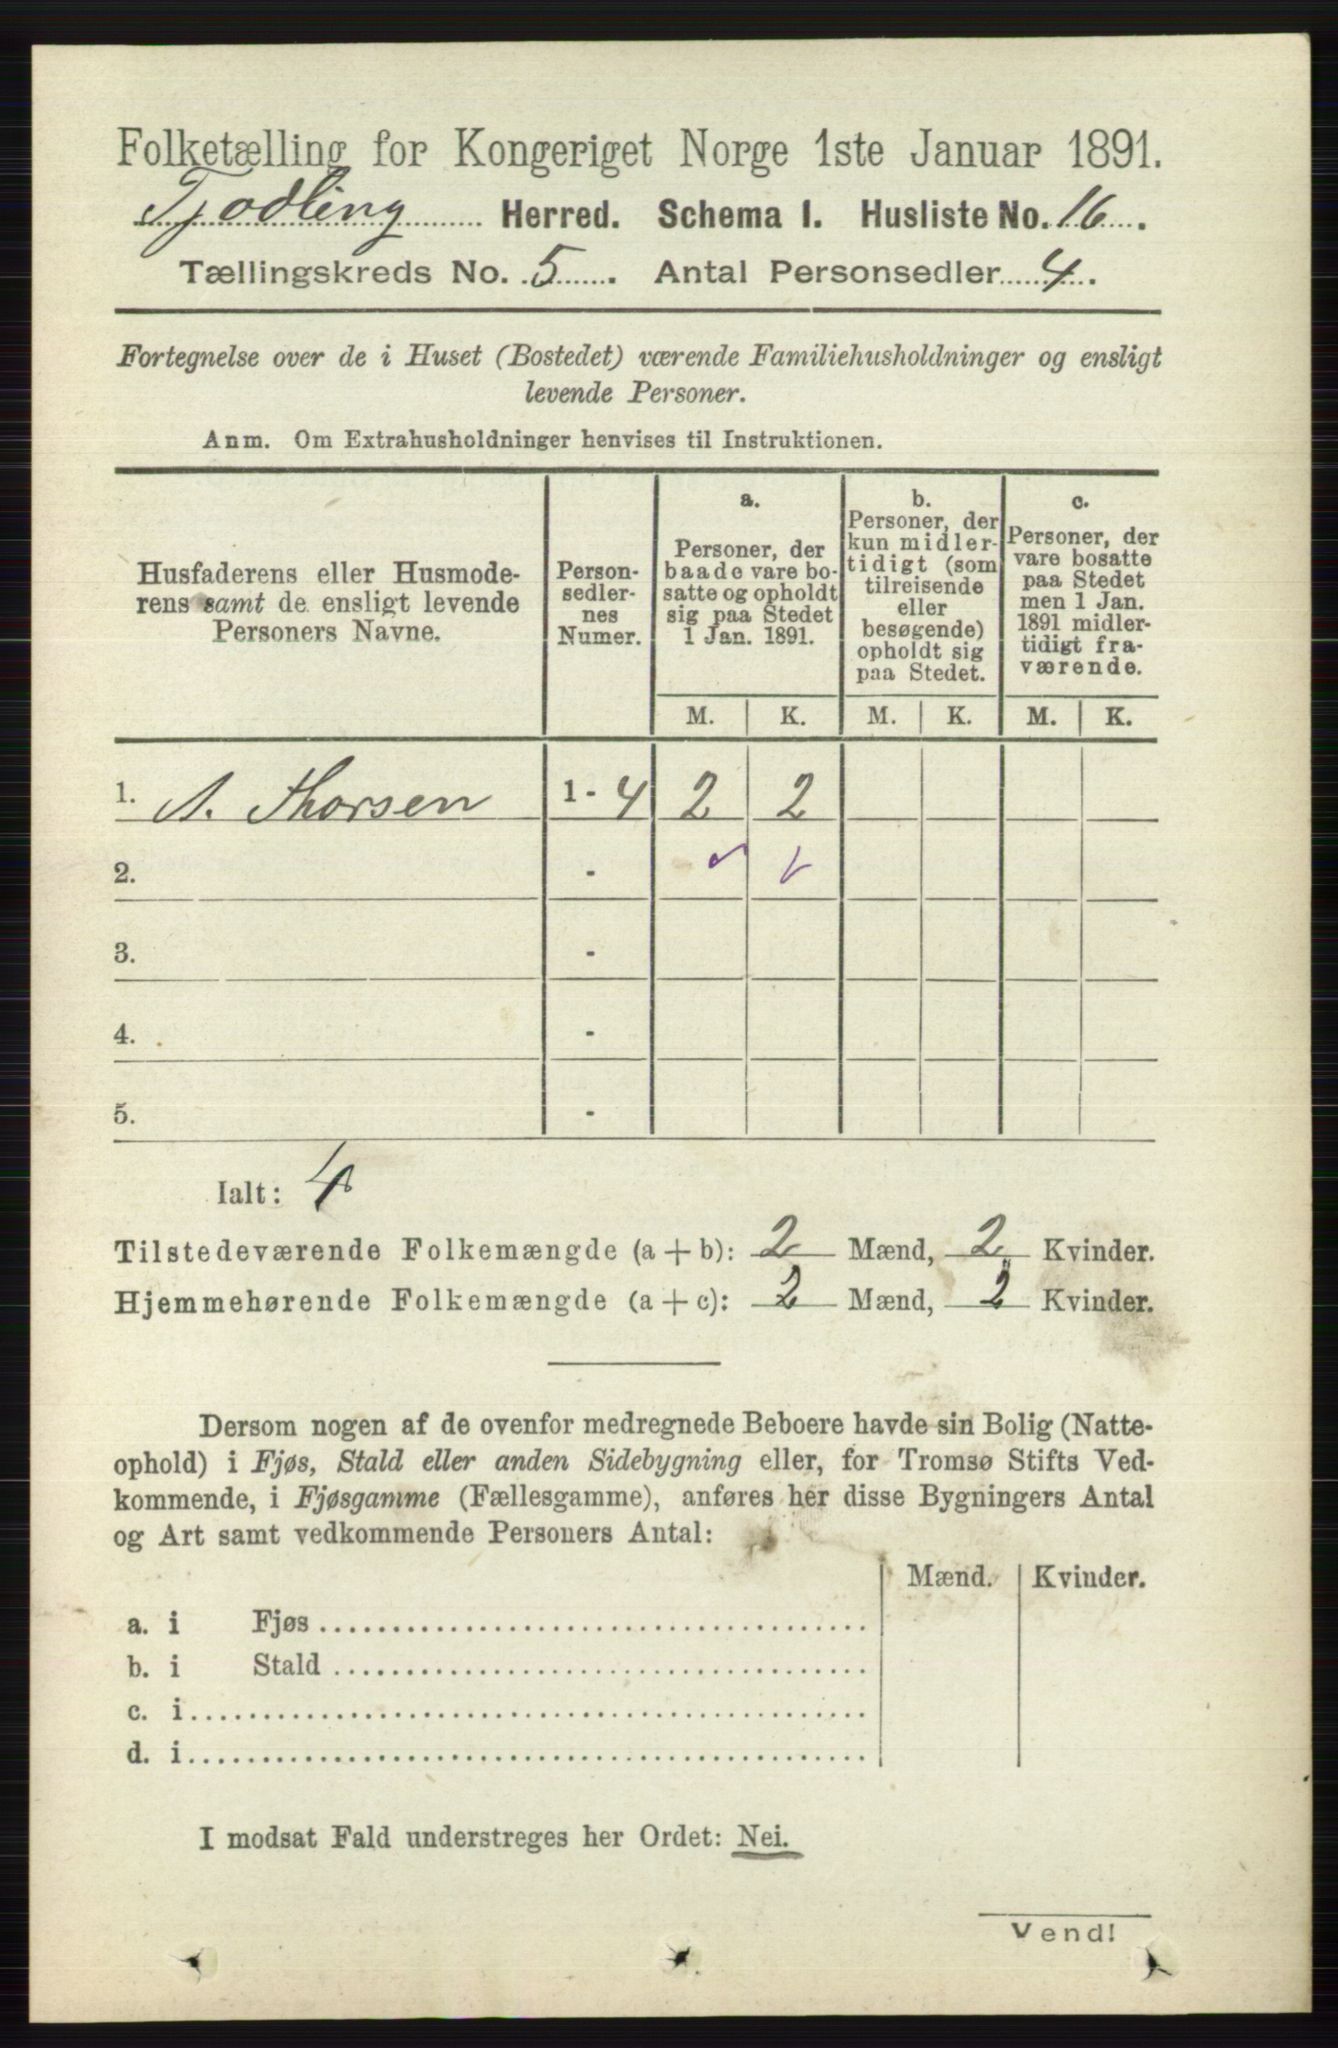 Folketælling for Kongeriget Norge 1ste Januar 1891.
Tjodling Herred. Schema I. Husliste No. 16.
Tællingskreds No. 5. Antal Personsedler 4.
Fortegnelse over de i Huset (Bostedet) værende Familiehusholdninger og ensligt
levende Personer.
Anm. Om Extrahusholdninger henvises til Instruktionen.
Husfaderens eller Husmode-
rens samt de ensligt levende
Personers Navne.
Person-
sedler-
nes
Numer.
a.
Personer, der
baade vare bo-
satte og opholdt
sig paa Stedet
1 Jan. 1891.
b.
Personer, der
kun midler-
tidigt (som
tilreisende
eller
besøgende)
opholdt sig
paa Stedet.
c.
Personer, der
vare bosatte
paa Stedet
men 1 Jan.
1891 midler-
tidigt fra-
værende.
M. K. M. K. M. K.
1. A. Thorsen 1 - 4 2 2
2. -
3. -
4. -
5. -
Ialt: 4
Tilstedeværende Folkemængde (a + b): 2 Mænd, 2 Kvinder.
Hjemmehørende Folkemængde (a + c): 2 Mænd, 2 Kvinder.
Dersom nogen af de ovenfor medregnede Beboere havde sin Bolig (Natte-
ophold) i Fjøs, Stald eller anden Sidebygning eller, for Tromsø Stifts Ved-
kommende, i Fjøsgamme (Fællesgamme), anføres her disse Bygningers Antal
og Art samt vedkommende Personers Antal:
Mænd. Kvinder.
a. i Fjøs
b. i Stald
c. i
d. i
I modsat Fald understreges her Ordet: Nei.
Vend!